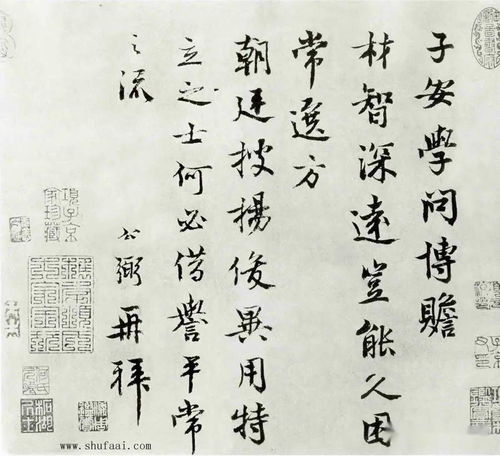 子安學問博贍
材智深遠豈能久困
常選方
朝廷拔揚俊異用特
立之士何必借譽平常
之流
公弼再拜
項子京家珍藏
www.shufaai.com